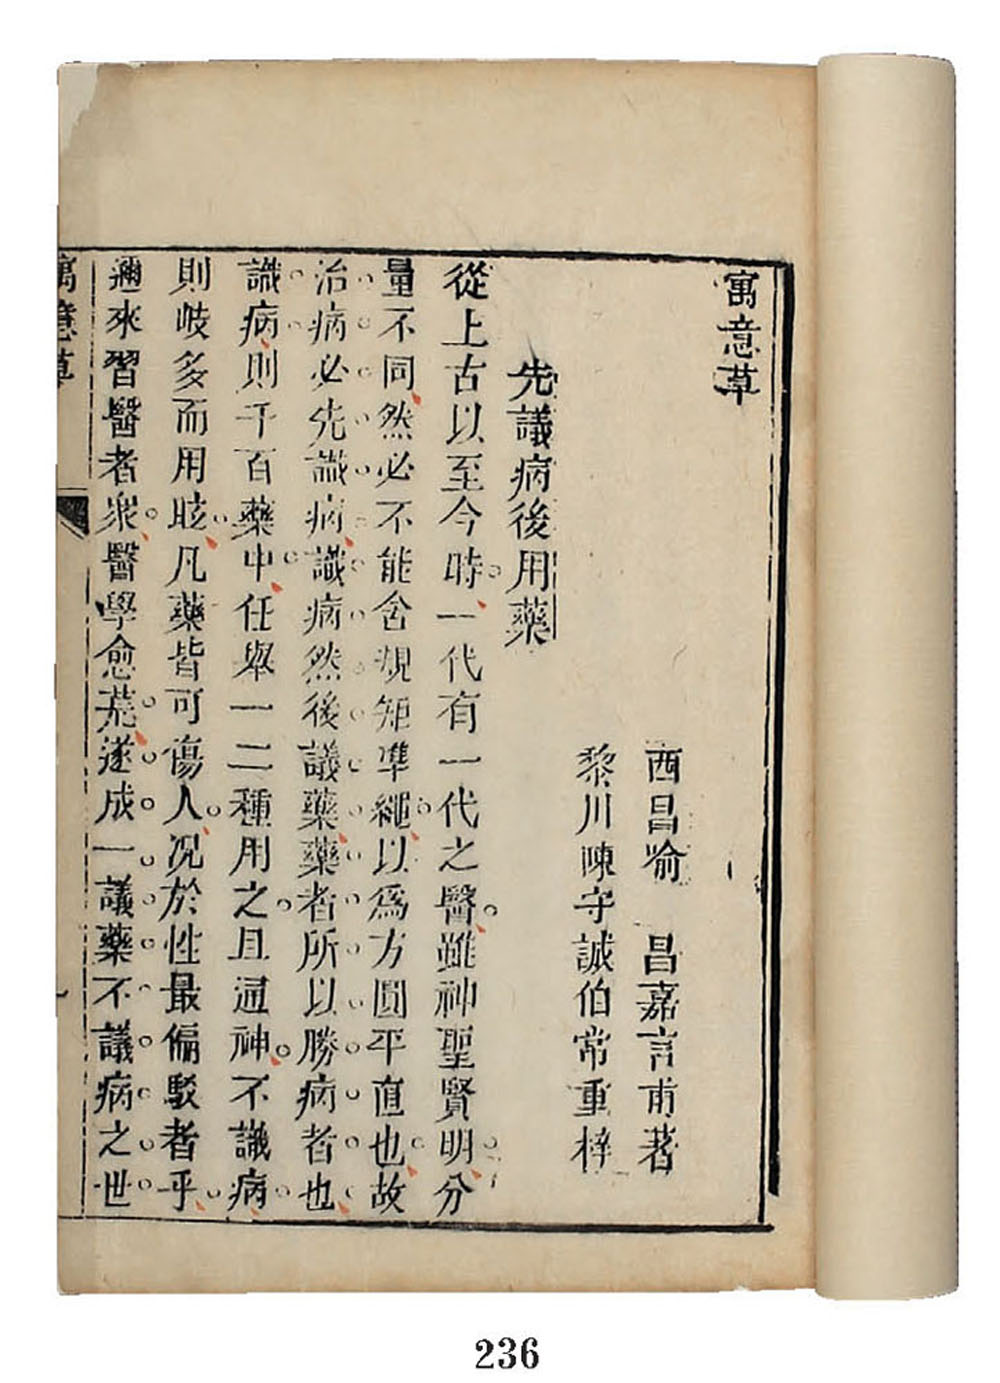 寓意草
西昌喻　昌嘉言甫著
黎川陳守誠伯常重梓
先議病後用藥
從上古以至今時一代有一代之醫雖神聖賢明分
量不同然必不能舍規矩準繩以爲方圓平直也故
治病必先識病識病然後議藥藥者所以勝病者也
識病則千百藥中任舉一二種用之且通神不識病
則岐多而用眩凡藥皆可傷人況於性最偏駁者乎
邇來習醫者衆醫學愈荒遂成一議藥不議病之世
寓意草
236